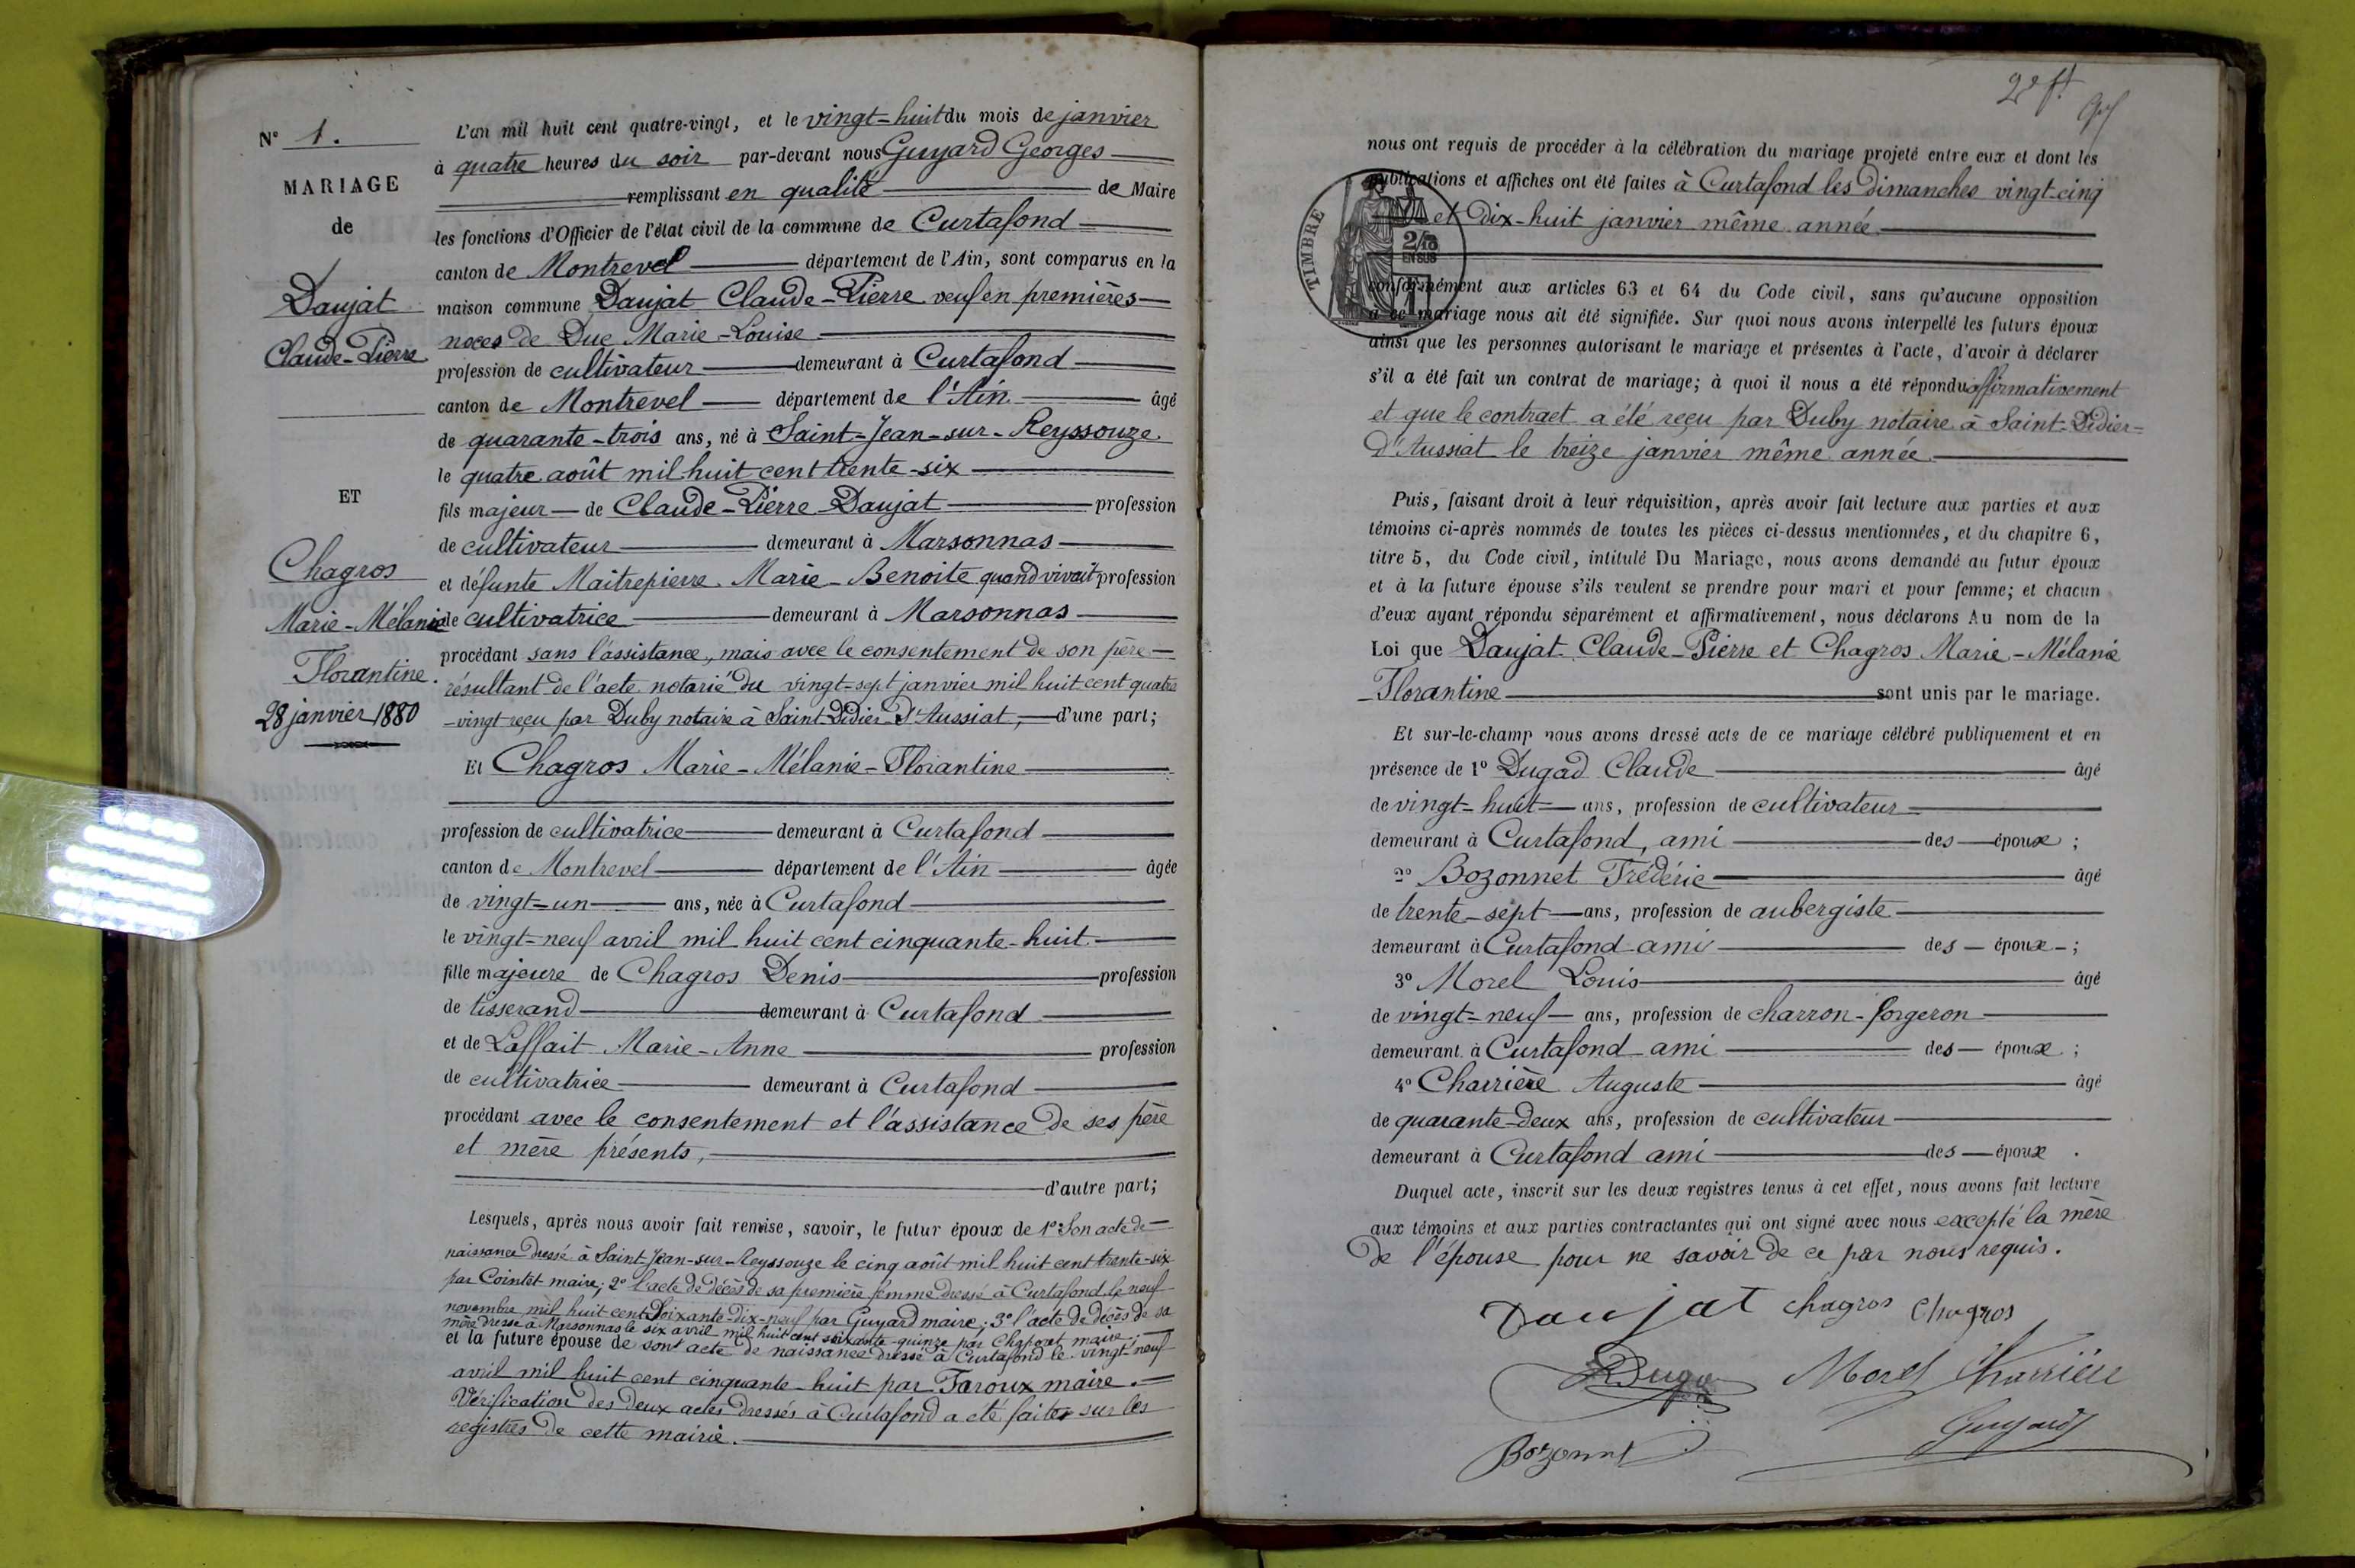 N° 1.
MARIAGE
de
Daujat
Claude-Pierre
ET
Chagros
Marie-Mélanie
Florantine.
28 janvier 1880
L'an mil huit cent quatre-vingt, et le vingt-huit du mois de janvier
à quatre heures du soir par-devant nous Guyard Georges
remplissant en qualité de Maire
les fonctions d'Officier de l'état civil de la commune de Curtafond
canton de Montrevel département de l'Ain, sont comparus en la
maison commune Daujat Claude-Pierre veuf en premières
noces de Duc Marie-Louise
profession de cultivateur demeurant à Curtafond
canton de Montrevel département de l'Ain âgé
de quarante-trois ans, né à Saint-Jean-sur-Reyssouze
le quatre août mil huit cent trente-six
fils majeur de Claude-Pierre Daujat profession
de cultivateur demeurant à Marsonnas
et défunte Maitrepierre Marie-Benoite quand vivait profession
de cultivatrice demeurant à Marsonnas
procédant sans l'assistance, mais avec le consentement de son père
résultant de l'acte notarié du vingt-sept janvier mil huit cent quatre
-vingt reçu par Duby notaire à Saint Didier d'Aussiat, d'une part;
Et Chagros Marie-Mélanie-Florantine
profession de cultivatrice demeurant à Curtafond
canton de Montrevel département de l'Ain âgée
de vingt-un ans, née à Curtafond
le vingt-neuf avril mil huit cent cinquante-huit
fille majeure de Chagros Denis profession
de tisserand demeurant à Curtafond
et de Laffait Marie-Anne profession
de cultivatrice demeurant à Curtafond
procédant avec le consentement et l'assistance de ses père
et mère présents,
d'autre part;
Lesquels, après nous avoir fait remise, savoir, le futur époux de 1° Son acte de
naissance dressé à Saint-Jean-sur-Reyssouze le cinq août mil huit cent trente-six
par Cointet maire; 2° l'acte de décès de sa première femme dressé à Curtafond le neuf
novembre mil huit cent soixante-dix-neuf par Guyard maire; 3° l'acte de décès de sa
mère dressé à Marsonnas le six avril mil huit cent soixante-quinze par maire;
et la future épouse de sont acte de naissance dressé à Curtafond le vingt-neuf
avril mil huit cent cinquante-huit par Faroux maire.
Vérification des deux actes dressés à Curtafond a été faite sur les
registres de cette mairie.
2e ft
nous ont requis de procéder à la célébration du mariage projeté entre eux et dont les
publications et affiches ont été faites à Curtafond les dimanches vingt-cinq
et dix-huit janvier même année
TIMBRE
2/10
EN SUS
conformément aux articles 63 et 64 du Code civil, sans qu'aucune opposition
à ce mariage nous ait été signifiée. Sur quoi nous avons interpellé les futurs époux
ainsi que les personnes autorisant le mariage et présentes à l'acte, d'avoir à déclarer
s'il a été fait un contrat de mariage; à quoi il nous a été répondu affirmativement
et que le contract a été reçu par Duby notaire à Saint-Didier-
d'Aussiat le treize janvier même année
Puis, faisant droit à leur réquisition, après avoir fait lecture aux parties et aux
témoins ci-après nommés de toutes les pièces ci-dessus mentionnées, et du chapitre 6,
titre 5, du Code civil, intitulé Du Mariage, nous avons demandé au futur époux
et à la future épouse s'ils veulent se prendre pour mari et pour femme; et chacun
d'eux ayant répondu séparément et affirmativement, nous déclarons Au nom de la
Loi que Daujat Claude-Pierre et Chagros Marie-Mélanie
-Florantine sont unis par le mariage.
Et sur-le-champ nous avons dressé acte de ce mariage célébré publiquement et en
présence de 1° Dugad Claude âgé
de vingt-huit ans, profession de cultivateur
demeurant à Curtafond, ami des époux ;
2° Bozonnet Frédéric âgé
de trente-sept ans, profession de aubergiste
demeurant à Curtafond ami des époux ;
3° Morel Louis âgé
de vingt-neuf ans, profession de charron-forgeron
demeurant à Curtafond ami des époux ;
4° Charrière Auguste âgé
de quarante-deux ans, profession de cultivateur
demeurant à Curtafond ami des époux .
Duquel acte, inscrit sur les deux registres tenus à cet effet, nous avons fait lecture
aux témoins et aux parties contractantes qui ont signé avec nous excepté la mère
de l'épouse pour ne savoir de ce par nous requis.
Daujat chagros Chagros
Morel Charrière
Guyard
Bozonnet